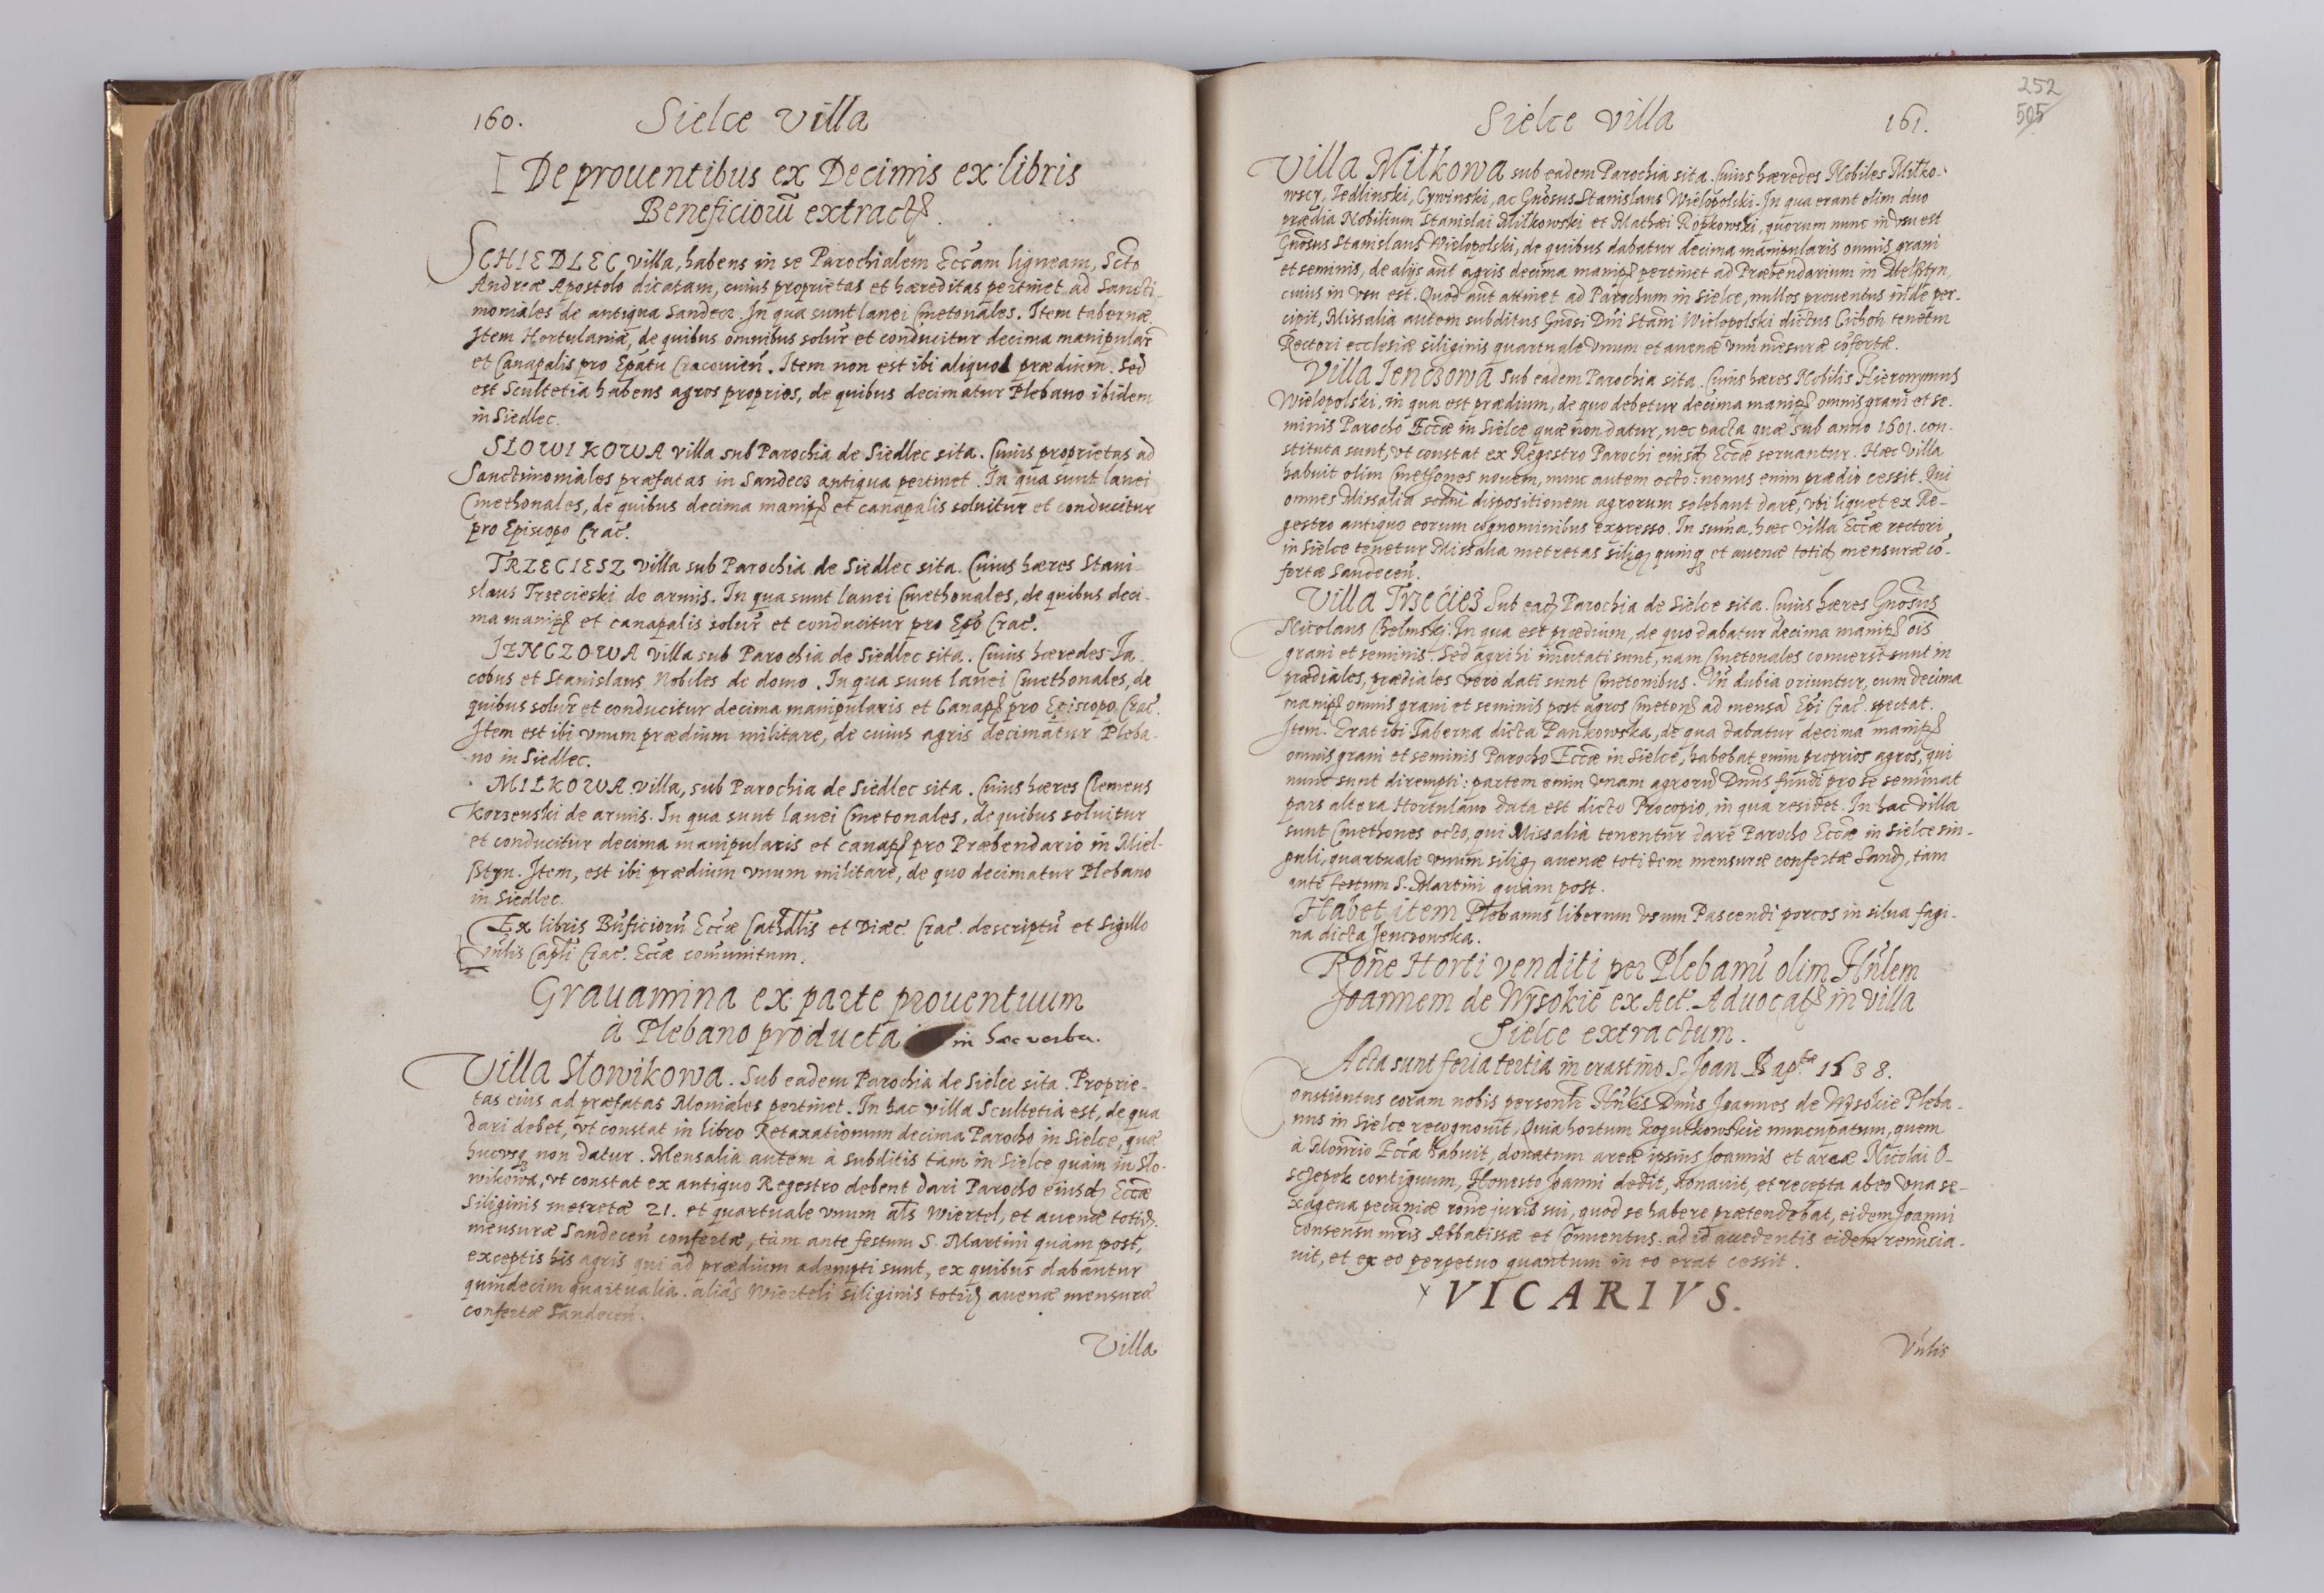 160. Sielce Villa
De prouentibus ex Decimis ex libris
Beneficiorũ extract.
SCHIEDLEC villa, habens in se Parochialem Eccãm ligneam, Scto
Andreæ Apostolo dicatam, cuius proprietas et hæreditas pertinet ad Sancti-
moniales de antiqua Sandecz. In qua sunt lanei Cmetonales. Item tabernæ
Item Hortulaniæ, de quibus omnibus solur̃ et conducitur decima manipular̃
et Canapalis pro Epatu Cracouien̄. Item non est ibi aliquod prædium. Sed
est Scultetia habens agros proprios, de quibus decimatur Plebano ibidem
in Siedlec.
SŁOWIKOWA villa sub Parochia de Siedlec sita. Cuius proprietas ad
Sanctimoniales præfatas in Sandecz antiqua pertinet. In qua sunt lanei
Cmethonales, de quibus decima manip. et canapalis soluitur et conducitur
pro Episcopo Crac.
TRZECIESZ villa sub Parochia de Siedlec sita. Cuius hæres Stani-
slaus Trzecieski de armis. In qua sunt lanei Cmethonales, de quibus deci-
ma manip. et canapalis solur̃ et conducitur pro Epõ Crac.
JENCZOWA villa sub Parochia de Siedlec sita. Cuius hæredes Ia-
cobus et Stanislaus Nobiles de domo. In qua sunt lanei Cmethonales, de
quibus solur̃ et conducitur decima manipularis et Canap. pro Episcopo Crac.
Item est ibi vnum prædium militare, de cuius agris decimatur Pleba-
no in Siedlec.
MIŁKOWA villa, sub Parochia de Siedlec sita. Cuius hæres Clemens
Korzenski de armis. In qua sunt lanei Cmetonales, de quibus soluitur
et conducitur decima manipularis et canap. pro Præbendario in Miel-
sztyn. Item, est ibi prædium vnum militare, de quo decimatur Plebano
in Siedlec.
Ex libris Bñficiorũ Eccæ Cathdlis et Diæc. Crac. descriptũ et Sigillo
Vnlis Capli Crac. Eccæ comunitum.
Grauamina ex parte prouentuum
à Plebano producta in hæc verba.
Villa Słowikowa. Sub eadem Parochia de Sielce sita. Proprie-
tas eius ad præfatas Moniales pertinet. In hac villa Scultetia est, de qua
dari debet, vt constat in libro Retaxationum decima Parocho in Sielce, quæ
hucusq non datur. Mensalia autem à subditis tàm in Sielce quàm in Sło-
wikowa, vt constat ex antiquo Regestro debent dari Parocho eiusd. Eccæ
Siliginis metretæ 21. et quartuale vnum als Wiertel, et auenæ totid.
mensuræ Sandecen̄ confertæ, tàm ante festum S. Martini quàm post,
exceptis his agris qui ad prædium adempti sunt, ex quibus dabantur
quindecim quartualia. aliâs Wierteli siliginis totid. auenæ mensuræ
confertæ Sandecen̄.
Villa
252
505
Sielce Villa 161.
Villa Miłkowa sub eadem Parochia sita. Cuius hæredes Nobiles Miłko-
wscy, Jedlinski, Cywinski, ac Gñosus Stanislaus Wielopolski. In qua erant olim duo
prædia Nobilium Stanislai Miłkowski et Mathæi Ropkowski, quorum nunc in vsu est
Gñosus Stanislaus Wielopolski, de quibus dabatur decima manipularis omnis grani
et seminis, de alijs aũt agris decima manip. pertinet ad Præbendarium in Melsztyn,
cuius in vsu est. Quod aũt attinet ad Parochum in Sielce, nullos prouentus inde per-
cipit, Missalia autem subditus Gñosi Dñi Stani Wielopolski dictus Cichoń tenetur
Rectori ecclesiæ siliginis quartuale vnum et auenæ vnũ mensuræ cõfertæ.
Villa Jenczowa sub eadem Parochia sita. Cuius hæres Nobilis Hieronymus
Wielopolski, in qua est prædium, de quo debetur decima manip. omnis grani et se-
minis Parocho Eccæ in Sielce quæ non datur, nec pacta quæ sub anno 1601. con-
stituta sunt, vt constat ex Regestro Parochi eiusd. Eccæ seruantur. Hæc Villa
habuit olim Cmethones nouem, nunc autem octo: nonus enim prædio cessit. Qui
omnes Missalia scdm̃ dispositionem agrorum solebant dare, vbi liquet ex Re-
gestro antiquo eorum cognominibus expresso. In suma hæc villa Eccæ rectori
in Sielce tenetur Missalia metretas silig. quinq et auenæ totid. mensuræ cõ-
fertæ Sandecen̄.
Villa Trzecies Sub ead. Parochia de Sielce sita. Cuius hæres Gñosus
Nicolaus Chelmski. In qua est prædium, de quo dabatur decima manip. ois
grani et seminis. Sed agri hi imutati sunt, nam Cmetonales conuersi sunt in
prædiales, prædiales verò dati sunt Cmetonibus. Vñ dubia oriuntur, cum decima
manip. omnis grani et seminis post agros Cmeton. ad mensã Epi Crac. spectat.
Item. Erat ibi Taberna dicta Pankowska, de qua dabatur decima manip.
omnis grani et seminis Parocho Eccæ in Sielce, habebat enim proprios agros, qui
nunc sunt dirempti: partem enim vnam agrorũ Dñus fundi pro se seminat
pars altera Hortulano data est dicto Procopio, in qua residet. In hac villa
sunt Cmethones octo, qui Missalia tenentur dare Parocho Eccæ in Sielce sin-
guli, quartuale vnum silig. auenæ totidem mensuræ confertæ Sand. tam
ante festum S. Martini quàm post.
Habet item Plebanus liberum vsum Pascendi porcos in silua fagi-
na dicta Jenczowska.
Rõne Horti venditi per Plebanũ olim Hñlem
Joannem de Wysokie ex Act. Aduocat. in villa
Sielce extractum.
Acta sunt feria tertia in crastino S. Joan. Bap.tæ 1638.
onstitutus coram nobis personlr Hñlis Dñus Joannes de Wysokie Pleba-
nus in Sielce recognouit, Quia hortum Kogutkowskie nuncupatum, quem
à Monrio Eccã habuit, donatum areæ ipsius Joannis et areæ Nicolai O-
sczepek contiguum, Honesto Joanni dedit, donauit, et recepta ab eo vna se-
xagena pecuniæ rõne juris sui, quod se habere prætendebat, eidem Joanni
consensu nris Abbatissæ et Conuentus ad id accedentis eidem renuncia-
uit, et ex eo perpetuo quantum in eo erat cessit.
VICARIVS.
Vnlis